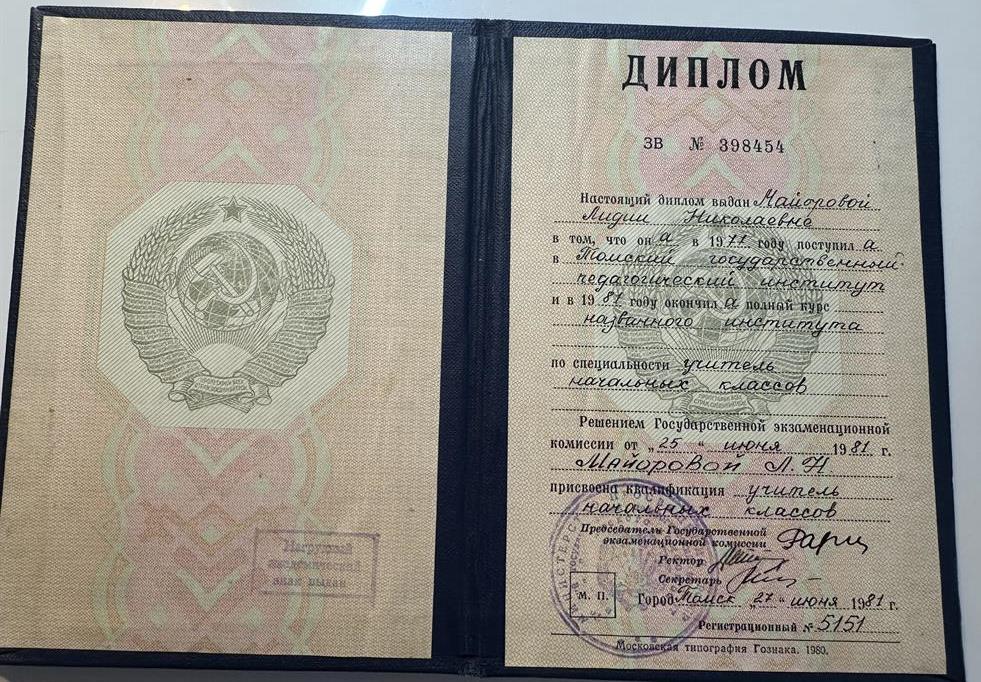 Нагрудный
академический
знак выдан
ДИПЛОМ
ЗВ № 398454
Настоящий диплом выдан Майоровой
Лидии Николаевне
в том, что он а в 1977 году поступил а
в Томский государственный
педагогический институт
и в 1981 году окончил а полный курс
названного института
по специальности учитель
начальных классов
Решением Государственной экзаменационной
комиссии от „25 “ июня 1981 г.
Майоровой Л. Н
присвоена квалификация учитель
начальных классов
Председатель Государственной
экзаменационной комиссии
Ректор
Секретарь
М. П.
Город Томск „27 “ июня 1981 г.
Регистрационный № 5151
Московская типография Гознака. 1980.